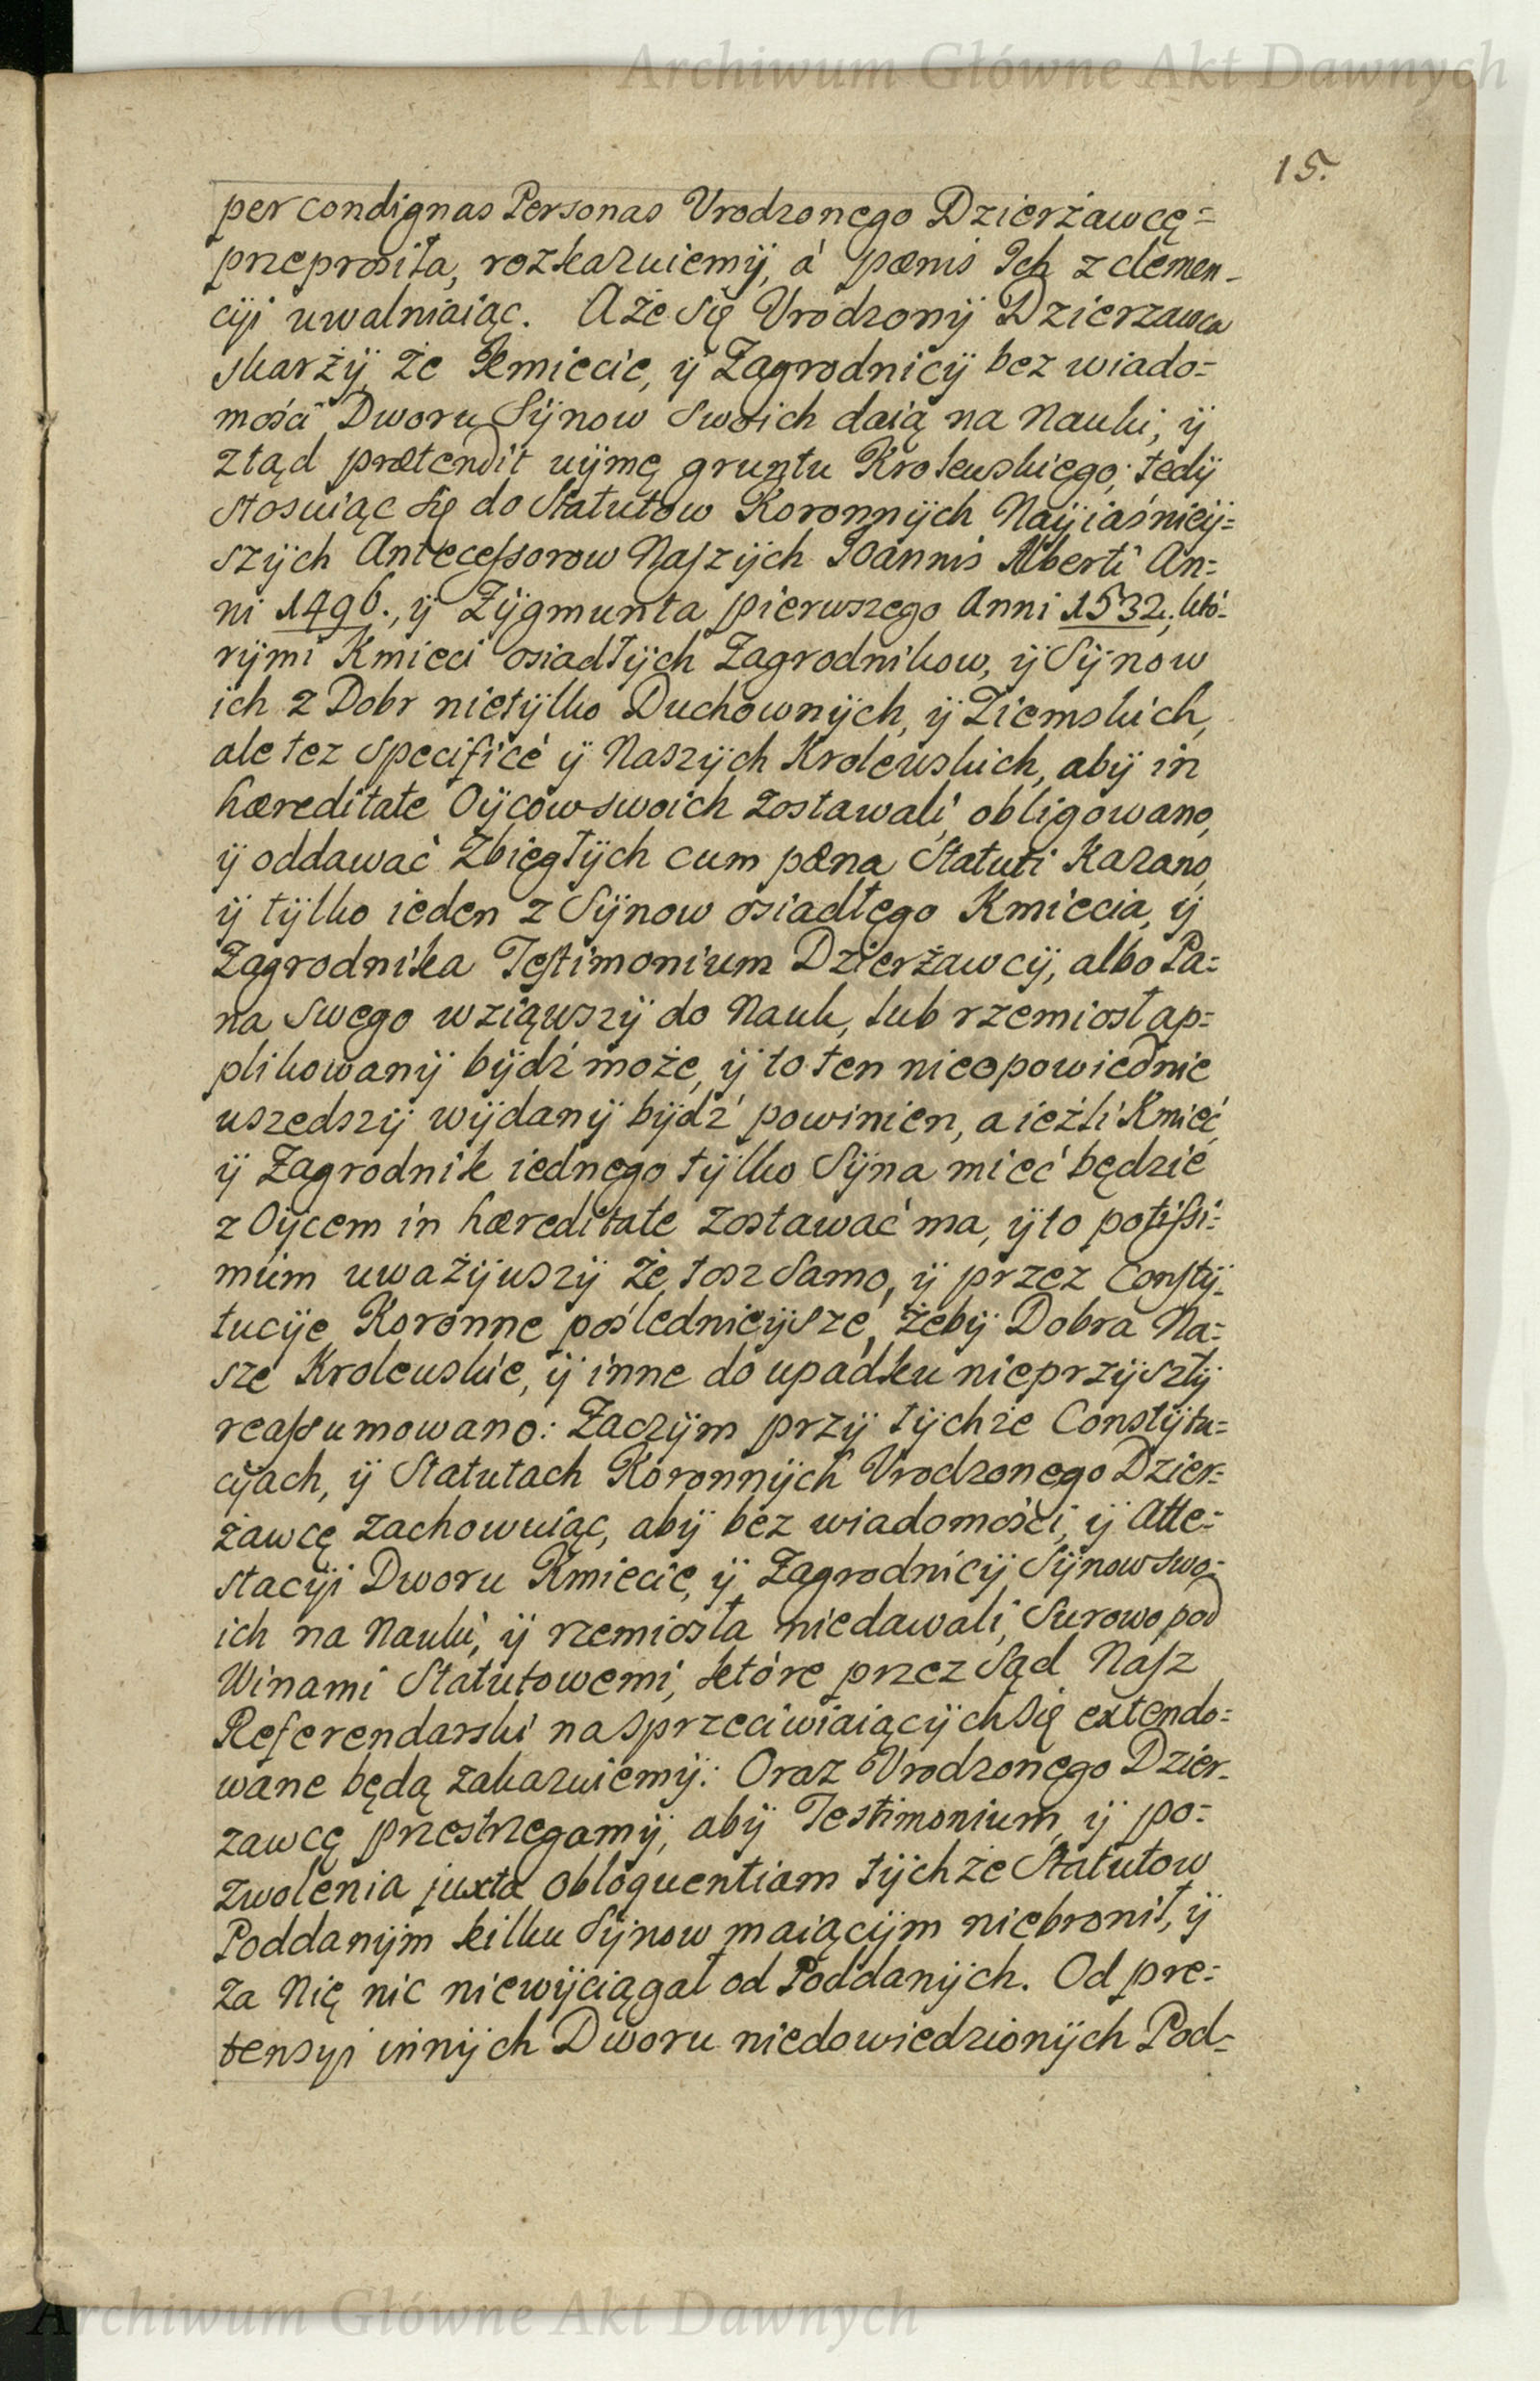 Archiwum Główne Akt Dawnych
15.
per condignas Personas Vrodzonego Dzierżawcę=
przeprosiła, rozkazuiemÿ, á pœnis Ich z clemen-
cÿi uwalniaiąc. A że się Vrodzonÿ Dzierzawca
skarżÿ, że Kmiecie, ÿ Zagrodnicÿ bez wiado=
mości Dworu Sÿnow swoich daią na Nauki, ÿ
ztąd prætendit uÿmę gruntu Krolewskiego; tedÿ
stosuiąc się do Statutow Koronnÿch Naÿiaśnieÿ=
szÿch Antecessorow Naszÿch Ioannis Alberti An=
ni 1496., ÿ Zÿgmunta pierwszego Anni 1532., któ=
rÿmi Kmieci osiadłÿch Zagrodnikow, ÿ Sÿnow
ich z Dobr nietÿlko Duchownÿch, ÿ Ziemskich,
ale tez specificé ÿ Naszÿch Krolewskich, abÿ in
hæreditate Oÿcow swoich zostawali, obligowano,
ÿ oddawać zbiegłÿch cum pœna Statuti Kazano,
ÿ tÿlko ieden z Sÿnow osiadłego Kmiecia, ÿ
Zagrodnika Testimonium Dzierżawcÿ, albo Pa=
na swego wziąwszÿ do Nauk, lub rzemiosł ap=
plikowanÿ bÿdź może, ÿ to ten nieopowiednie
uszedszÿ wÿdanÿ bÿdź powinien, a ieźli Kmieć,
ÿ Zagrodnik iednego tÿlko Sÿna mieć będzie
z Oÿcem in hæreditate zostawać ma, ÿ to potissi=
mum uważÿwszÿ że tosz samo, ÿ przez Constÿ=
tucÿe Koronne poślednieÿsze, żebÿ Dobra Na=
sze Krolewskie, ÿ inne do upadku nieprzÿszłÿ
reassumowano: Zaczÿm przÿ tÿchże Constÿtu=
cÿach, ÿ Statutach Koronnÿch Vrodzonego Dzier=
żawcę zachowuiąc, abÿ bez wiadomości, ÿ Atte=
stacÿi Dworu Kmiecie, ÿ Zagrodnicÿ Sÿnow swo=
ich na Nauki, ÿ rzemiosła niedawali, surowo pod
Winami Statutowemi, które przez Sąd Nasz
Referendarski na sprzeciwiaiącÿch się extendo=
wane będą zakazuiemÿ: Oraz Vrodzonego Dzier-
zawcę przestrzegamÿ, abÿ Testimonium, ÿ po=
zwolenia juxta obloquentiam tÿchże Statutow
Poddanÿm kilku Sÿnow maiącÿm niebronił, ÿ
za Nię nic niewÿciągał od Poddanÿch. Od pre=
tensyi innÿch Dworu niedowiedzionÿch Pod=
Archiwum Główne Akt Dawnych